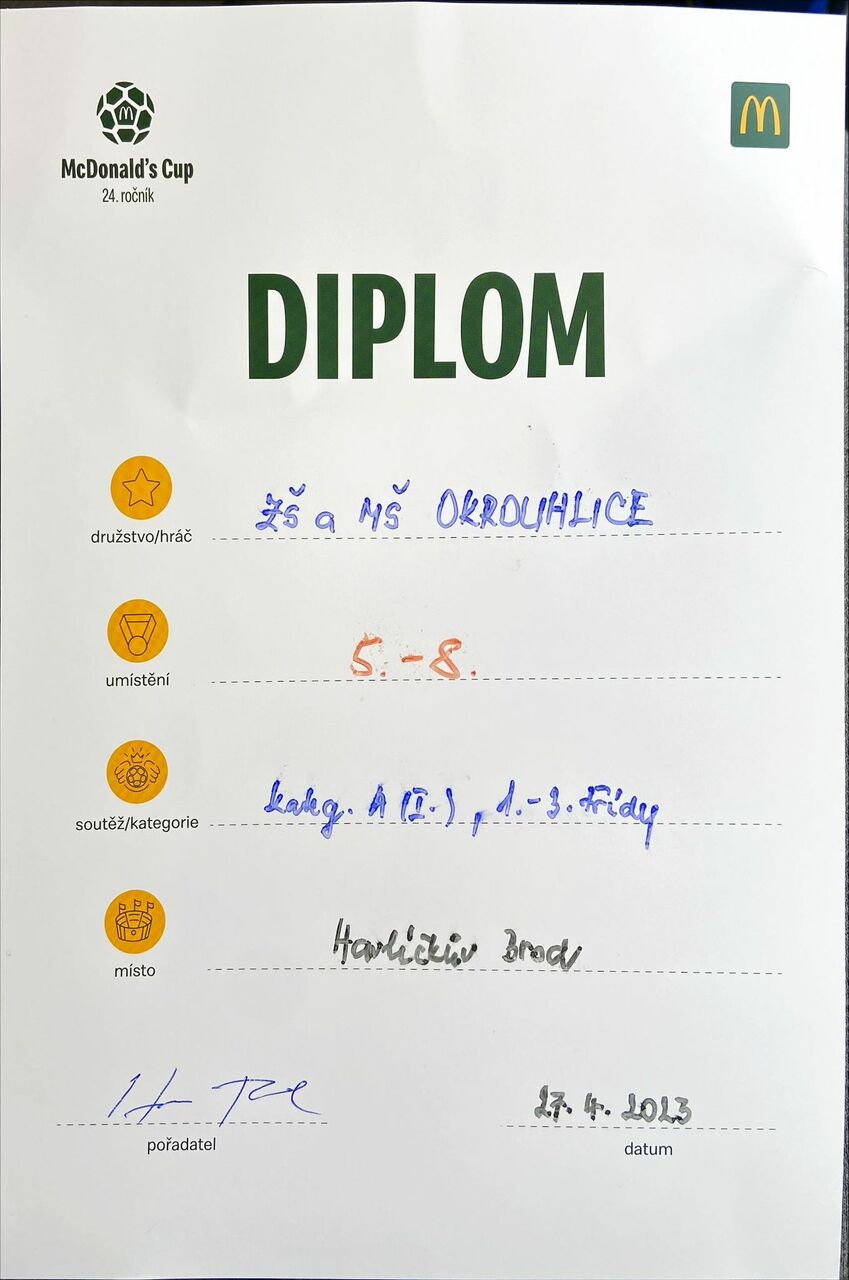 McDonald's Cup
24. ročník
DIPLOM
družstvo/hráč ZŠ a MŠ OKROUHLICE
umístění 5.-8.
soutěž/kategorie kateg. A (I.), 1.-3. třídy
místo Havlíčkův Brod
27. 4. 2023
pořadatel datum